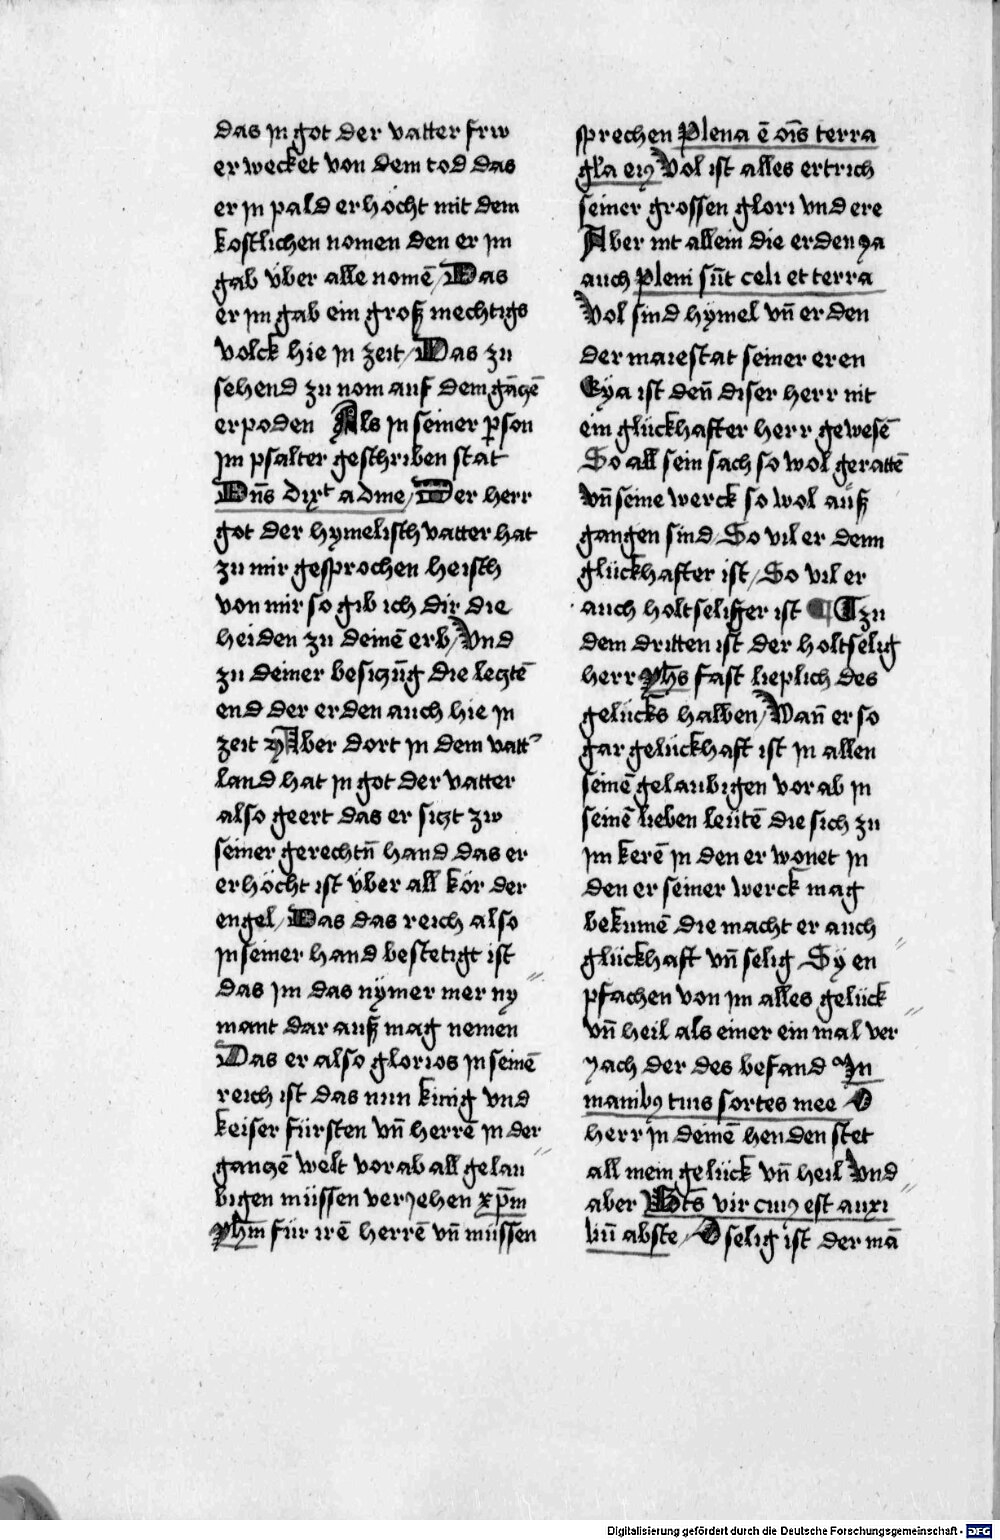 das in got der vatter frw
er wecket von dem tod das
er in pald er höcht mit dem
kostlichen nomen den er im
gab über alle nomē / Das
er im gab ein groß mechtigs
volck hie in zeit / Das zu
sehend zu nom auf dem gāczē
erpoden Als in seiner pson
im psalter geschriben stat
Dn̄s dixt ad me / Der herr
got der hymelisch vatter hat
zu mir gesprochen heisch
von mir so gib ich dir die
heiden zu deinē erb / Vnd
zu deiner besiczūg die lecztē
end der erden auch hie in
zeit Aber dort in dem vatt
land hat in got der vatter
also geert das er siczt zw
seiner gerechtn̄ hand das er
erhöcht ist über all kör der
engel / Das das reich also
in seiner hand bestetigt ist
das im das nymer mer ny
mant dar auß mag nemen
Das er also glorios in seinē
reich ist das nun künig vnd
keiser fürsten vn̄ herrē in der
ganczē welt vorab all gelau
bigen müssen veriehen xp̄m
yhm̄ für irē herrē vn̄ müssen
sprechen Plena ē oīs terra
gl̄a eiꝯ Vol ist alles ertrich
seiner grossen glori vnd ere
Aber nit allein die erden ya
auch pleni sūt celi et terra
Vol sind hymel vn̄ erden
der maiestat seiner eren
Eya ist den̄ diser herr nit
ein glückhafter herr gewesē
So all sein sach so wol gerattē
vn̄ seine werck so wol auß
gangen sind / So vil er denn
glückhafter ist / So vil er
auch holtseliger ist ¶ Tzu
dem dritten ist der holtselig
herr yhs̄ fast lieplich des
gelücks halben / Wan̄ er so
gar gelückhaft ist in allen
seinē gelaubigen vorab in
seinē lieben leütē die sich zu
im kerē in den er wonet in
den er seiner werck mag
bekumē die macht er auch
glückhaft vn̄ selig Sy en
pfachen von im alles gelück
vn̄ heil als einer ein mal ver
yach der des befand In
manibꝯ tuis sortes mee O
herr in deinē henden stet
all mein gelück vn̄ heil Vnd
aber Bt̄s vir cuiꝯ est auxi
liū abs te / O selig ist der mā
Digitalisierung gefördert durch die Deutsche Forschungsgemeinschaft - DFG